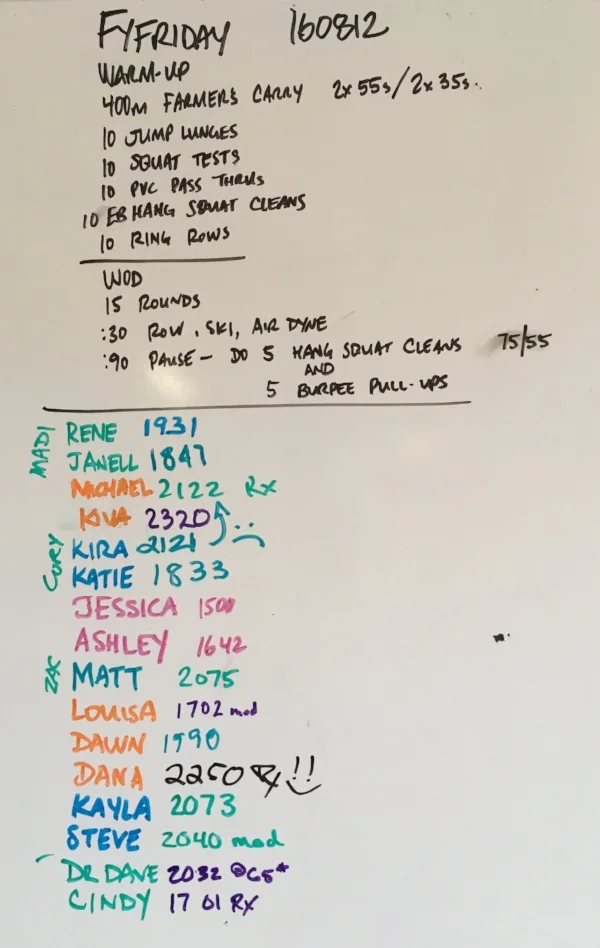 FYFRIDAY 160812
WARM-UP
400m FARMER'S CARRY 2x55s/2x35s.
10 JUMP LUNGES
10 SQUAT TESTS
10 PVC PASS THRUS
10 EB HANG SQUAT CLEANS
10 RING ROWS
WOD
15 ROUNDS
:30 ROW, SKI, AIR DYNE
:90 PAUSE - DO 5 HANG SQUAT CLEANS 75/55
AND
5 BURPEE PULL-UPS
MADI
RENE 1931
JANELL 1847
MICHAEL 2122 Rx
KIVA 2320
CORY
KIRA 2121
KATIE 1833
JESSICA 1500
ASHLEY 1642
ZAC
MATT 2075
LOUISA 1702 mod
DAWN 1990
DANA 2250 Rx!!
KAYLA 2073
STEVE 2040 mod
DR DAVE 2032 @65*
CINDY 1701 RX